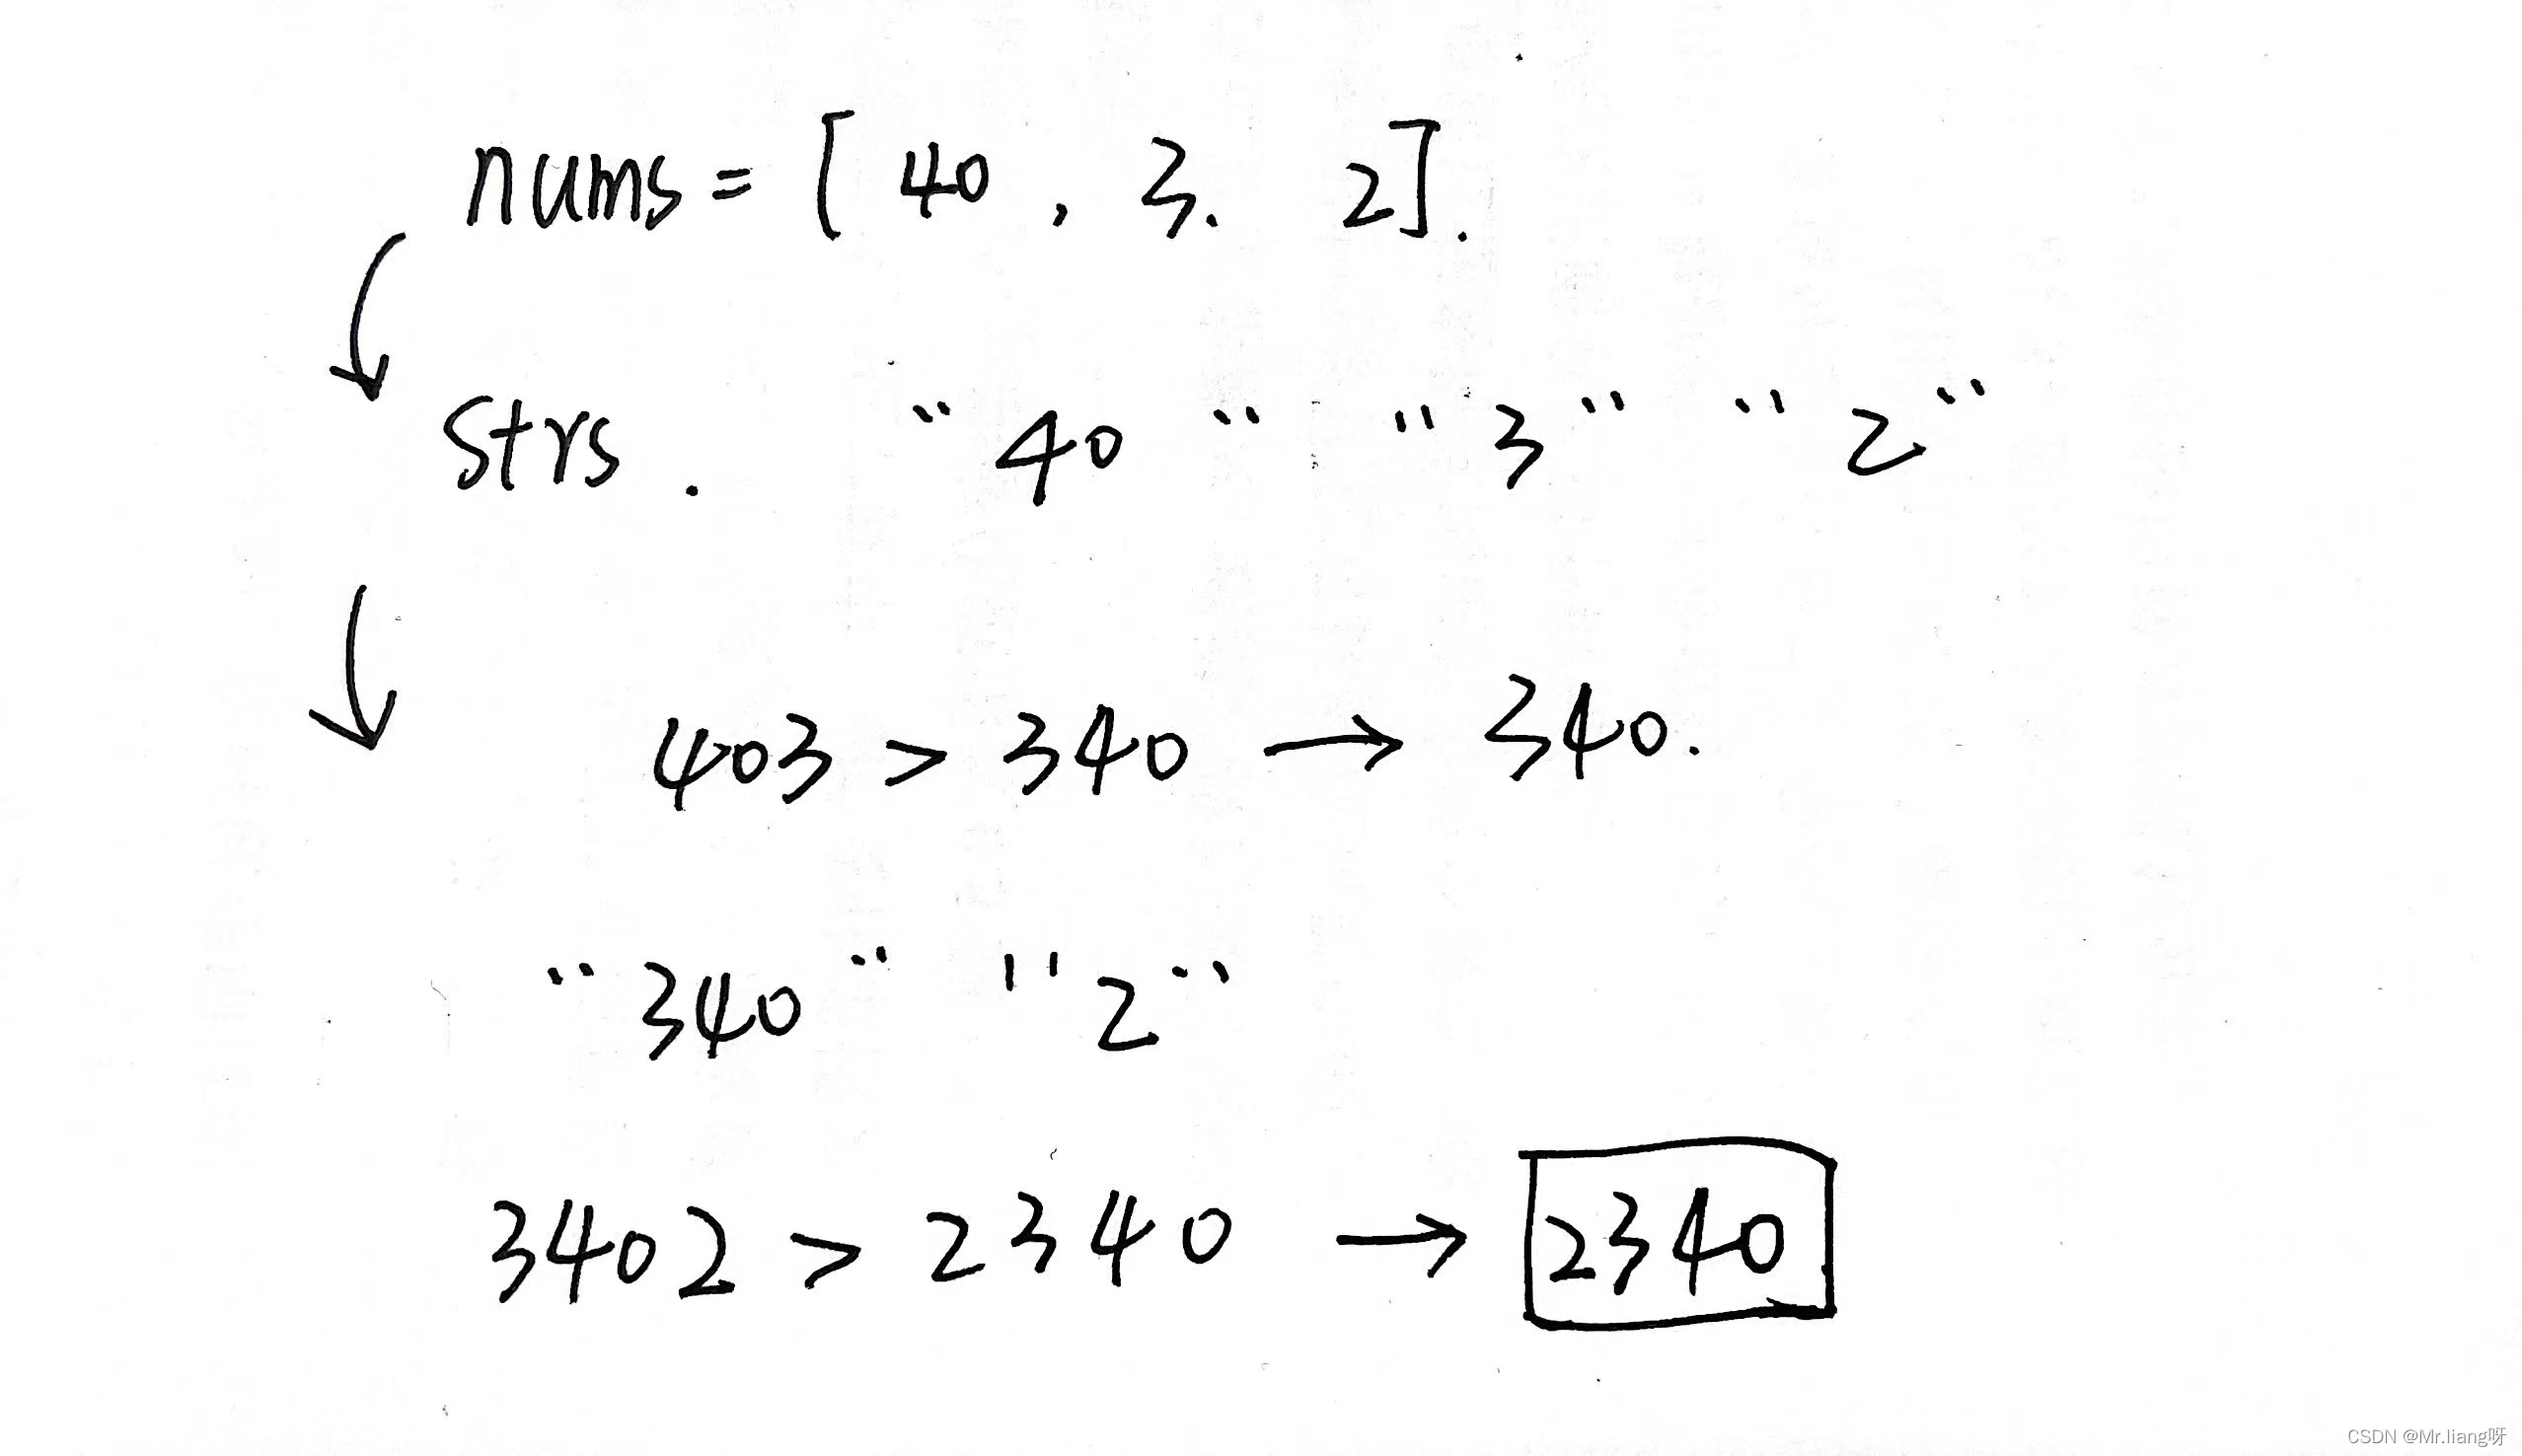 nums = [ 40 , 3. 2].
strs . "40" "3" "2"
403 > 340 → 340.
"340" "2"
3402 > 2340 → 2340
CSDN @Mr.liang呀